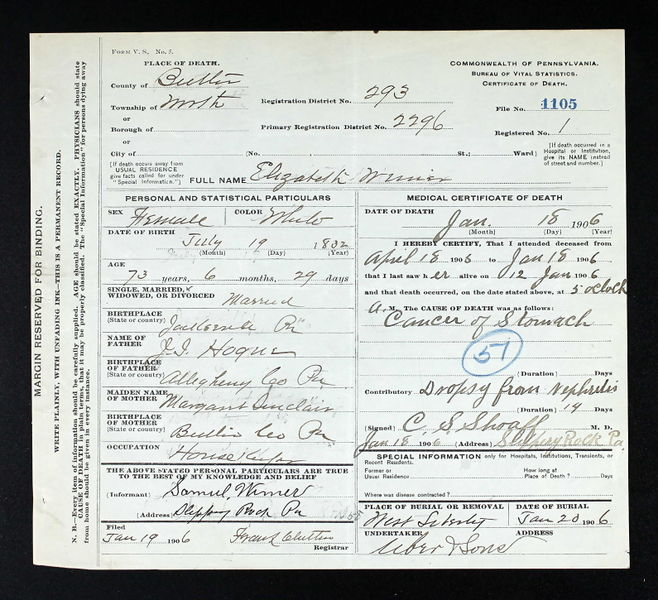 FORM V. S. No. 5.
PLACE OF DEATH.
County of Butler
Township of Worth
or
Borough of
or
City of (No. St.; Ward)
[If death occurs away from USUAL RESIDENCE give facts called for under "Special Information."]
Registration District No. 293
Primary Registration District No. 2296
COMMONWEALTH OF PENNSYLVANIA.
BUREAU OF VITAL STATISTICS.
CERTIFICATE OF DEATH.
File No. 1105
Registered No. 1
[If death occurred in a Hospital or Institution, give its NAME instead of street and number.]
FULL NAME Elizabeth Wimer
PERSONAL AND STATISTICAL PARTICULARS
SEX Female COLOR White
DATE OF BIRTH
July 19 1832
(Month) (Day) (Year)
AGE
73 years, 6 months, 29 days
SINGLE, MARRIED,
WIDOWED, OR DIVORCED Married
BIRTHPLACE
(State or country) Pa
NAME OF
FATHER J. I. Hogue
BIRTHPLACE
OF FATHER
(State or country) Allegheny Co Pa
MAIDEN NAME
OF MOTHER Margaret Sinclair
BIRTHPLACE
OF MOTHER
(State or country) Butler Co Pa
OCCUPATION House
THE ABOVE STATED PERSONAL PARTICULARS ARE TRUE
TO THE BEST OF MY KNOWLEDGE AND BELIEF
(Informant) Samuel Wimer
(Address) Slippery Rock Pa
Filed
Jan 19 1906 Frank
Registrar
MEDICAL CERTIFICATE OF DEATH
DATE OF DEATH
Jan. 18 1906
(Month) (Day) (Year)
I HEREBY CERTIFY, That I attended deceased from
April 18 1905 to Jan 18 1906
that I last saw her alive on 12 Jan 1906
and that death occurred, on the date stated above, at 5 oclock
A. M. The CAUSE OF DEATH was as follows:
Cancer of Stomach
57
(Duration) Days
Contributory Dropsy from Nephritis
(Duration) 19 Days
(Signed) C. S. Shoaff M. D.
Jan 18 1906 (Address) Slippery Rock Pa.
SPECIAL INFORMATION only for Hospitals, Institutions, Transients, or
Recent Residents.
Former or
Usual Residence
How long at
Place of Death? Days
Where was disease contracted?
PLACE OF BURIAL OR REMOVAL
West Liberty
DATE OF BURIAL
Jan 20 1906
UNDERTAKER
Uber & Sons
ADDRESS
MARGIN RESERVED FOR BINDING.
WRITE PLAINLY, WITH UNFADING INK—THIS IS A PERMANENT RECORD.
N. B.—Every item of information should be carefully supplied. AGE should be stated EXACTLY. PHYSICIANS should state
CAUSE OF DEATH in plain terms, that it may be properly classified. The "Special Information" for persons dying away
from home should be given in every instance.